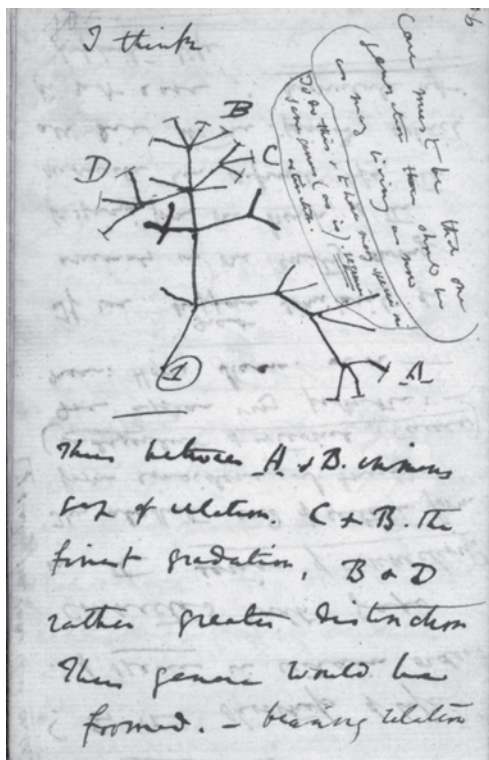 I think
36
Case must be that one
generation then should be
as many living as now
To do this & to have many species in
same genus (as is). requires
extinction.
B
C
D
A
1
Thus between A & B. immens
gap of relation. C & B. The
finest gradation, B & D
rather greater distinction
Thus genera would be
formed. — bearing relation